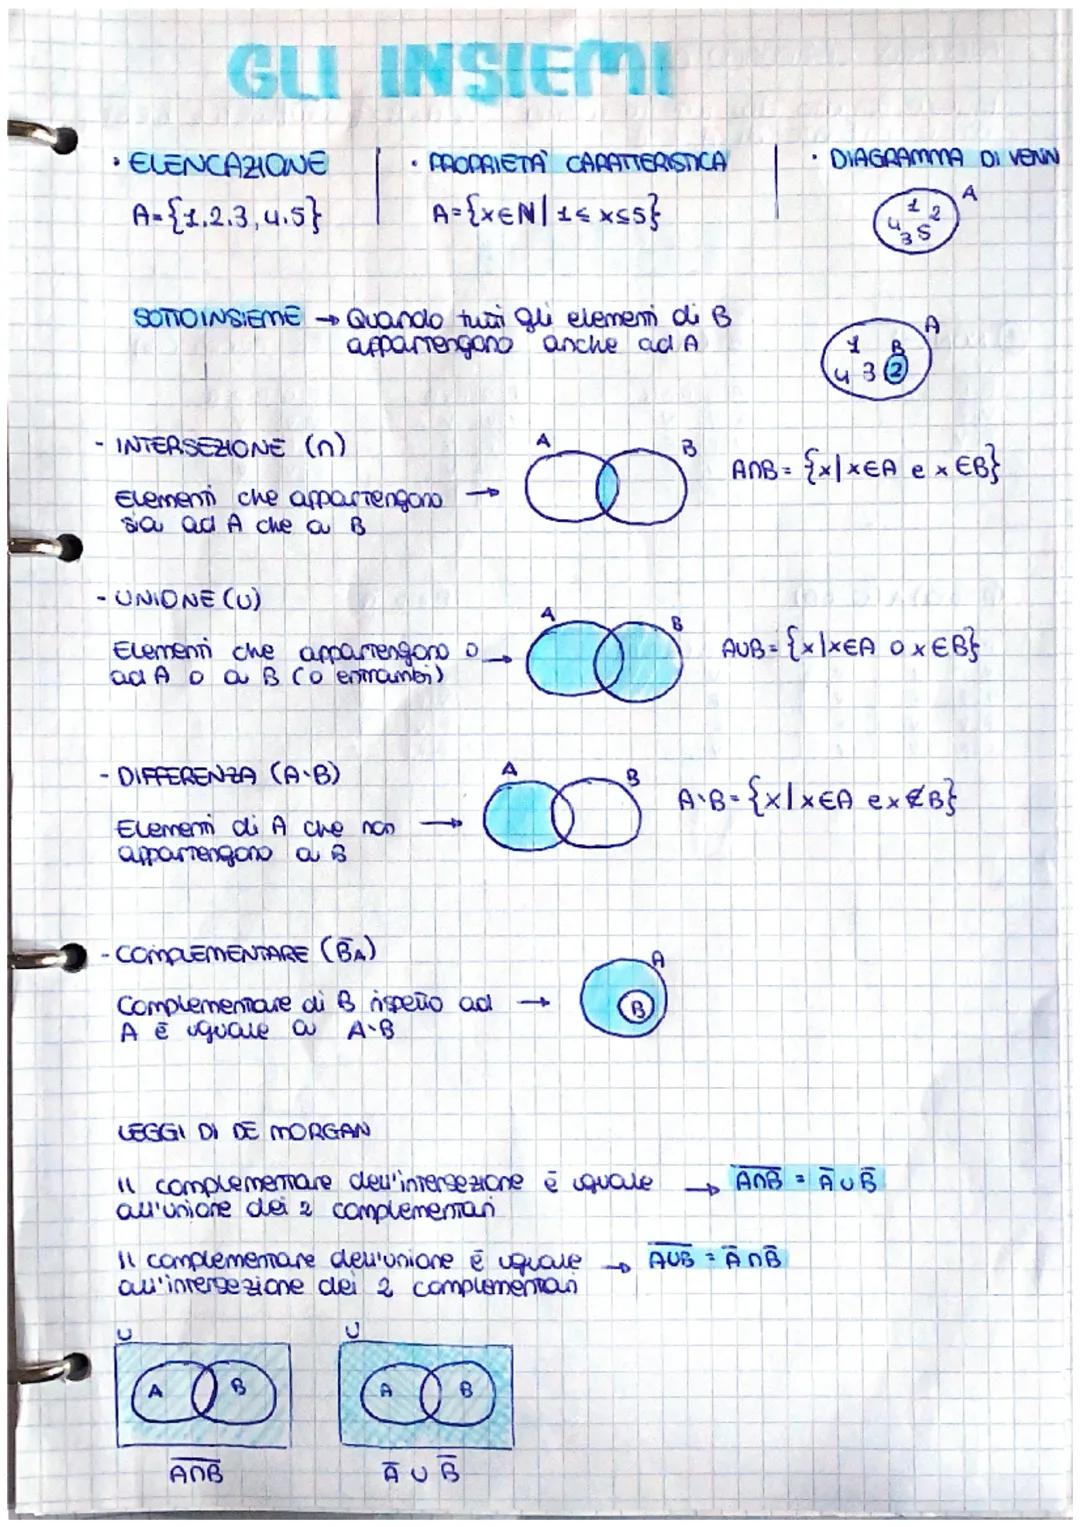 GLI INSIEMI
· ELENCAZIONE
A={1.2.3,4.5}
· PROPRIETA' CARATTERISTICA
A={x∈N| 1≤ x≤5}
· DIAGRAMMA DI VENN
A
1 2
4 3 5
SOTTOINSIEME → Quando tutti gli elementi di B
appartengono anche ad A
A
1 B
4 3 2
- INTERSEZIONE (∩)
Elementi che appartengono →
sia ad A che a B
A B
A∩B = {x| x∈A e x ∈B}
- UNIONE (U)
Elementi che appartengono o →
ad A o a B (o entrambi)
A B
AUB = {x|x∈A o x ∈B}
- DIFFERENZA (A\B)
Elementi di A che non →
appartengono a B
A B
A\B = {x| x∈A e x ∉B}
- COMPLEMENTARE (B̅A)
Complementare di B rispetto ad →
A è uguale a A\B
A
B
LEGGI DI DE MORGAN
Il complementare dell'intersezione è uguale → A̅∩̅B̅ = A̅ ∪ B̅
all'unione dei 2 complementari
Il complementare dell'unione è uguale → A̅∪̅B̅ = A̅ ∩ B̅
all'intersezione dei 2 complementari
U U
A B A B
A̅∩̅B̅ A̅ ∪ B̅